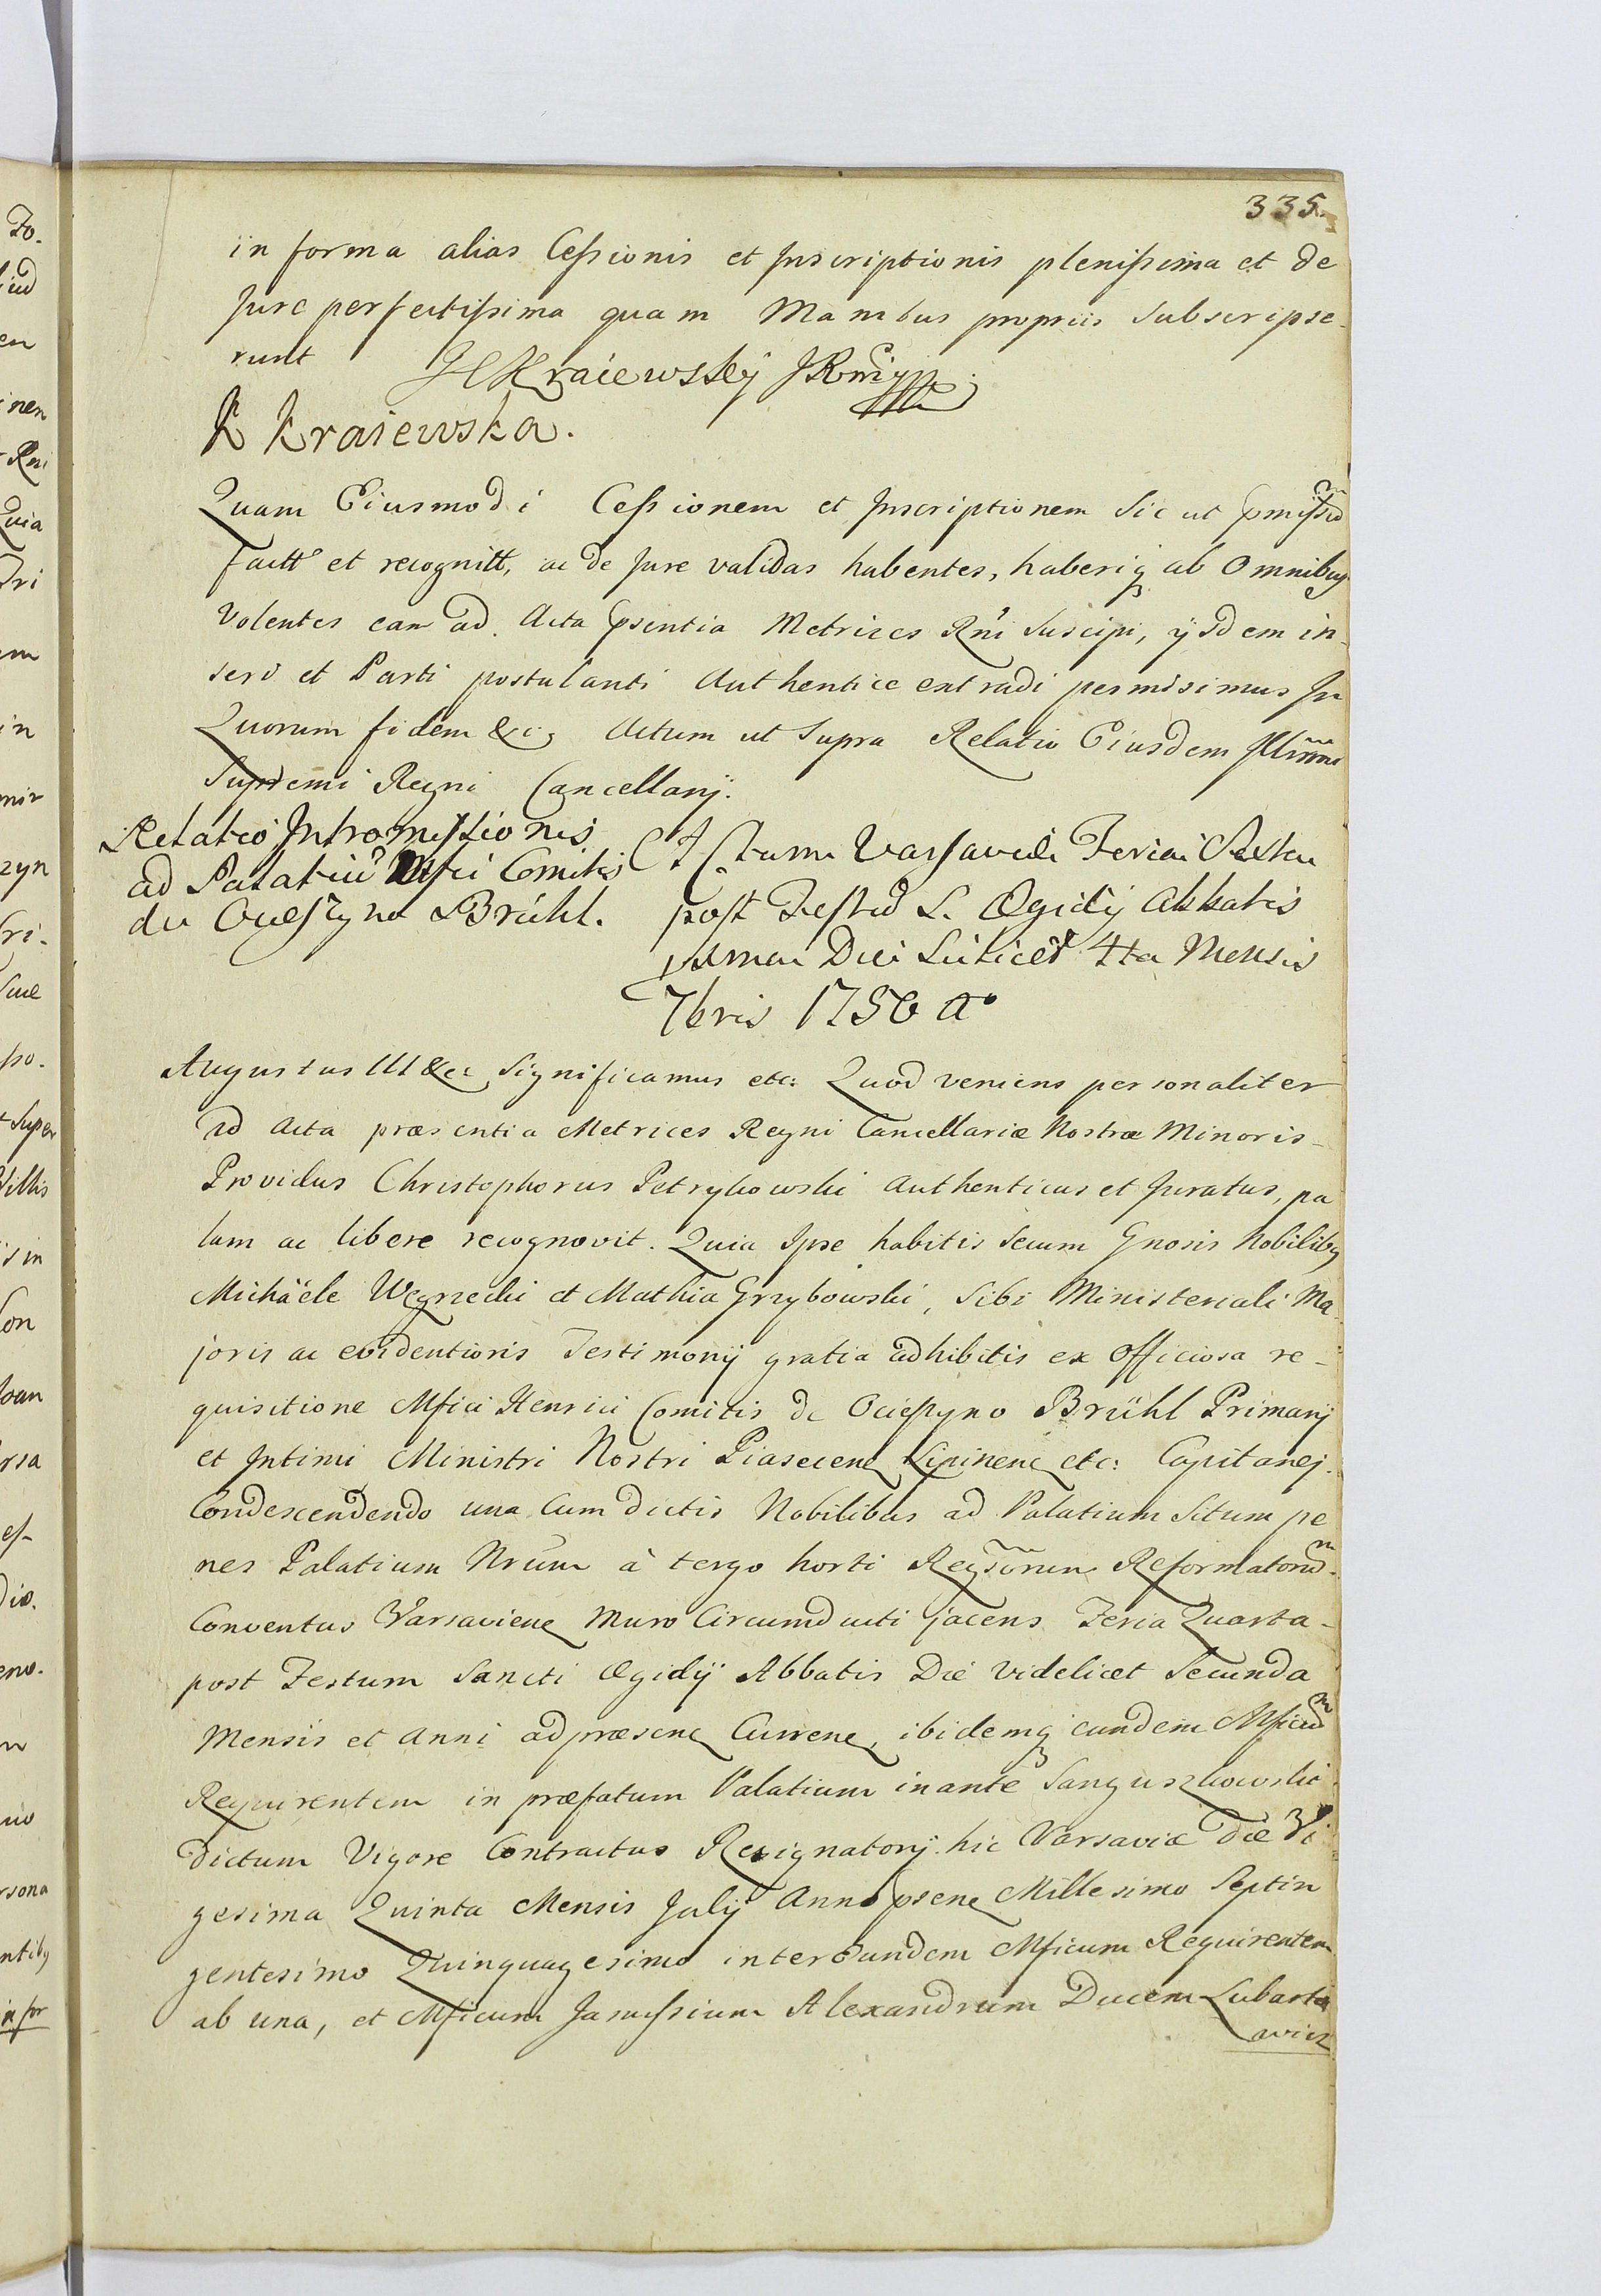 335.
in forma alias Cessionis et Inscriptionis plenissima et de
Jure perfectissima quam Manibus propriis subscripse-
runt Kraiewskÿ
K Kraiewska.
Quam Eiusmodi Cessionem et Inscriptionem sic ut pmissũ
factt et recognitt, ac de Jure validas habentes, haberiq ab Omnibus
Volentes eam ad Acta psentia Metrices Rñi suscipi, ÿsdem in-
seri et Parti postulanti Authentice extradi permisimus In
Quorum fidem &c Actum ut supra Relatio Eiusdem Illũmi
Supremi Regni Cancellarij.
Relatio Intromissionis
ad Palatiũ Mfci Comitis
de Ocieszyno Brühl.
Actum Varsaviæ Feria Sexta
post Festũ S. Ægidÿ Abbatis
Die scilicet 4ta Mensis
7bris 1750 Aº
Augustus III &c Significamus etc: Quod veniens personaliter
ad Acta præsentia Metrices Regni Cancellariæ Nostræ Minoris
Providus Christophorus Petrykowski Authenticus et Juratus, pa
lam ac libere recognovit. Quia Ipse habitis secum Gnosis Nobilibus
Michäele Węgrzecki et Mathia Grzybowski, sibi Ministeriali Ma-
joris ac evidentioris Testimonÿ gratia adhibitis ex Officiosa re-
quisitione Mfici Henrici Comitis de Ocieszyno Brühl Primarÿ
et Intimi Ministri Nostri Piasecen Lipinen etc: Capitanej.
Condescendendo una cum dictis Nobilibus ad Palatium situm pe
nes Palatium Nrũm à tergo horti Reformatorũ
Conventus Varsavien Muro Circumducti jacens Feria Quarta-
post Festum Sancti Ægidÿ Abbatis Die videlicet Secunda
Mensis et Anni ad præsens Curren, ibidemq eundem Mficũ
Requirentem in præfatum Palatium inante Sanguszkowski
dictum Vigore Contractus Resignatorÿ hic Varsaviæ Die Vi
gesima Quinta Mensis Julÿ Anno psen Millesimo Septin
gentesimo Quinquagesimo inter Eundem Mficum Requirentem
ab una, et Mficum Janussium Alexandrum Ducem Lubarto
wicz